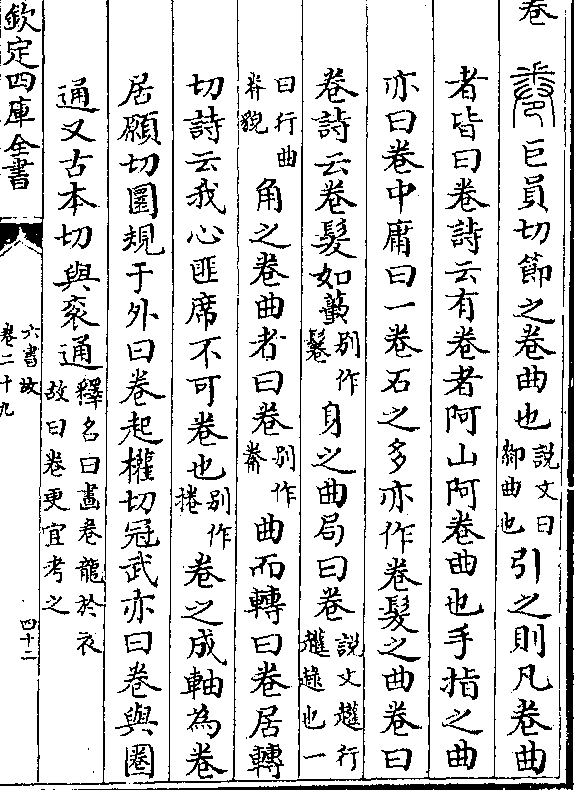 卷 巨員切節之卷曲也說文曰厀曲也引之則凡卷曲
者皆曰卷詩云有卷者阿山阿卷曲也手指之曲
亦曰卷中庸曰一卷石之多亦作卷髮之曲卷曰
卷詩云卷髮如蠆別作鬈身之曲局曰卷說文趢行趢趚也一
曰行曲脊貌角之卷曲者曰卷別作觠曲而轉曰卷居轉
切詩云我心匪席不可卷也別作捲卷之成軸為卷
居願切圜規于外曰卷起權切冠武亦曰卷與圈
通又古本切與衮通釋名曰畫卷龍於衣故曰卷更宜考之
欽定四庫全書
六書故
卷二十九
四十二